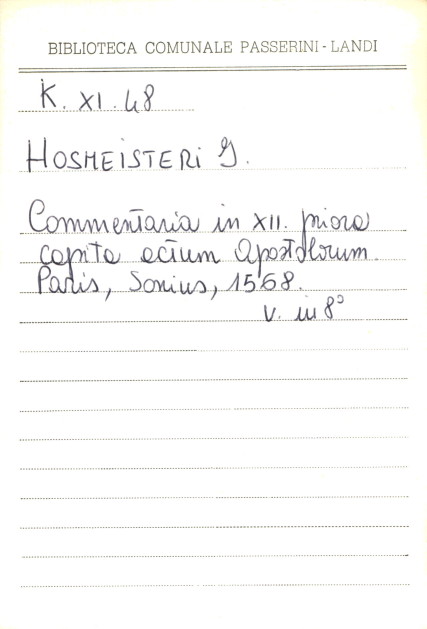 BIBLIOTECA COMUNALE PASSERINI - LANDI
K. XI. 48
HOSMEISTERI J.
Commentaria in XII. priora
capita actum Apostolorum.
Paris, Sonius, 1568.
V. in 8°